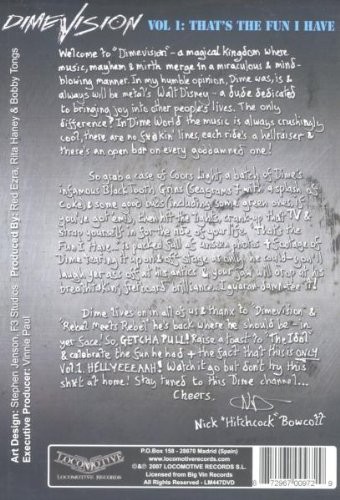 DIMEVISION VOL 1: THAT'S THE FUN I HAVE
Welcome to "Dimevision" - a magical kingdom where
music, mayhem & mirth merge in a miraculous & mind-
blowing manner. In my humble opinion, Dime was, is &
always will be metal's Walt Disney - a dude dedicated
to bringing joy into other people's lives. The only
difference? In Dime World the music is always crushingly
cool, there are no f*#kin' lines, each ride's a hellraiser &
there's an open bar on every goddamned one!
So grab a case of Coors Light, a batch of Dime's
infamous BlackTooth Grins (Seagrams + with a splash of
coke, & some goof bugs (including some green ones if
you've got em), then hit the lights, crank up that TV &
strap yourself in for the ride of your life. "That's
the Fun I Have" is packed full of unseen photos + footage of
Dime tearing it up on & off stage as only he could - you'll
laugh yer ass off at his antics & your jaw will drop at his
breathtakin', fretboard brilliance. Layoran damnator it!
Dime lives on in all of us & thanx to Dimevision &
"Rebel Meets Rebel" he's back where he should be - in
yer face! So, GETCHA PULL! Raise a toast to The Idol
& celebrate the fun he had + the fact that this is ONLY
Vol 1. HELLYEEEAH! Watch it go but don't try this
sh#t at home! Stay tuned to this Dime channel...
Cheers,
Nick "Hitchcock" Bowcott
Art Design: Stephen Jenson, F3 Studios Produced By: Red Ezra, Rita Haney & Bobby Tongs
Executive Producer: Vinnie Paul
LOCOMOTIVE
LOCOMOTIVE RECORDS
P.O.Box 158 - 28670 Madrid (Spain)
www.locomotiverecords.com
© & ℗ 2007 LOCOMOTIVE RECORDS, S.L.
Licensed from Big Vin Records
LM447DVD
8 72967 00972 9